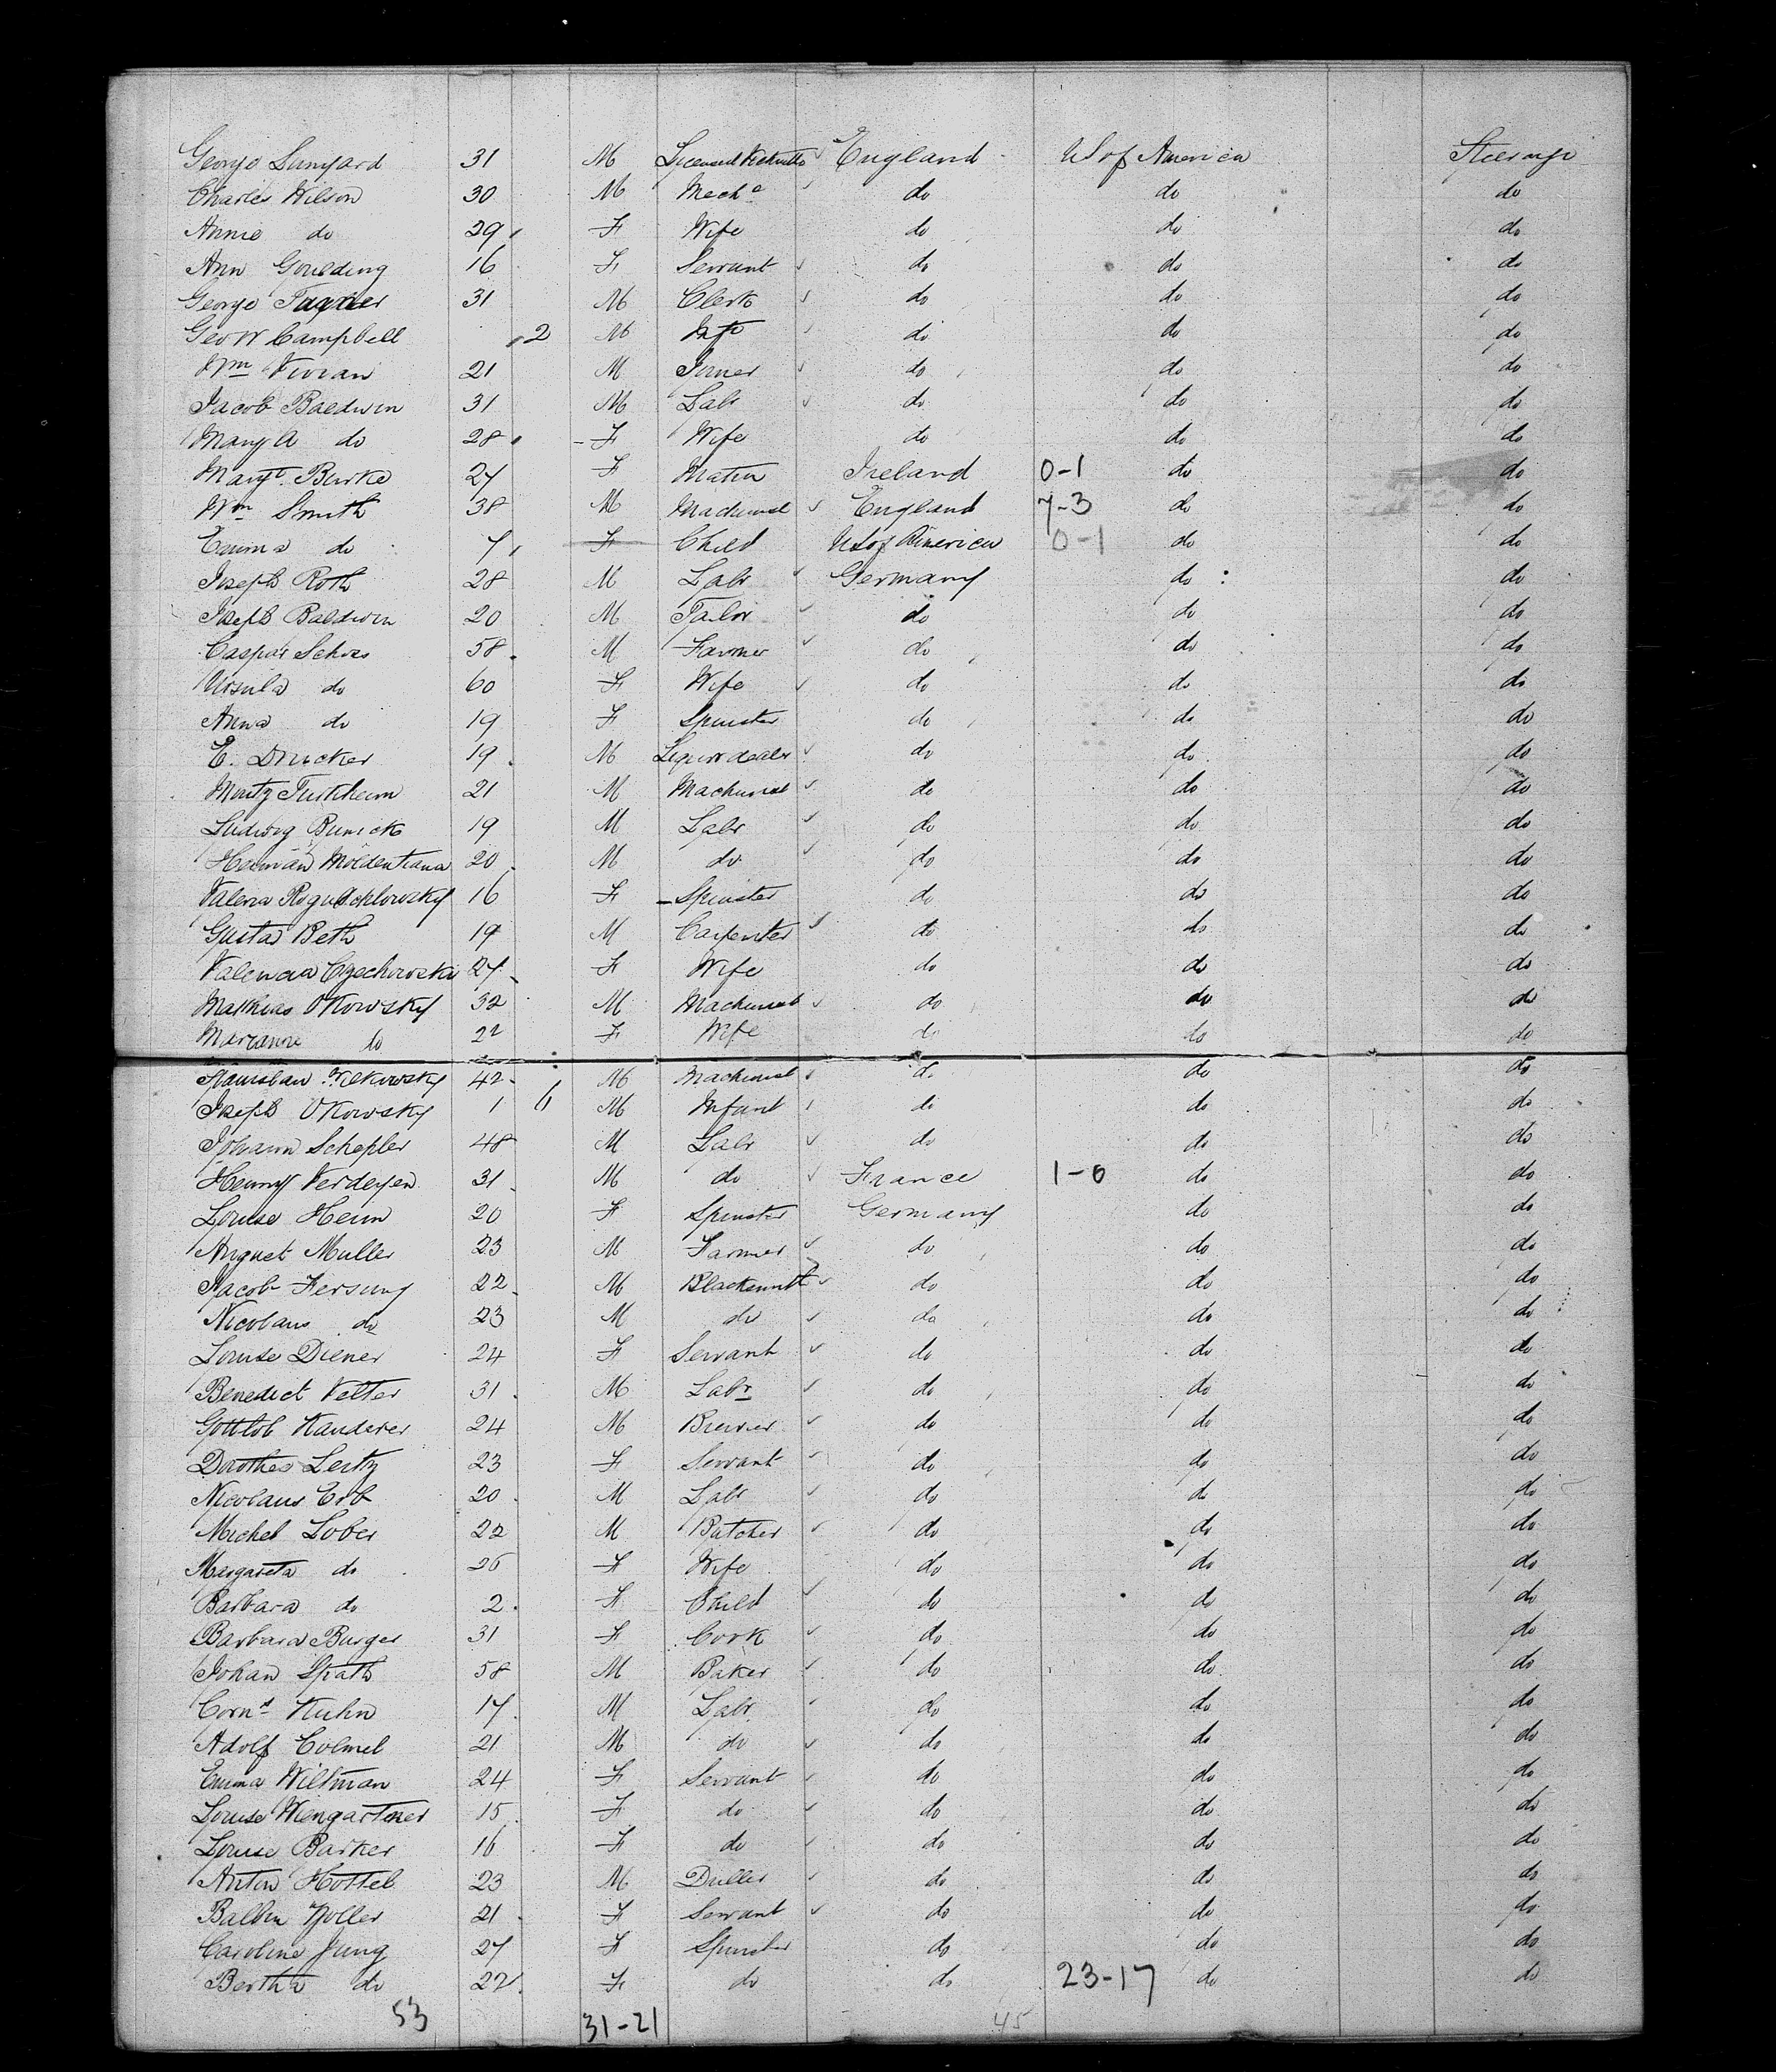 George Lanyard 31 M Licensed England US of America Steerage
Charles Wilson 30 M Mechc do do do
Annie do 29 F Wife do do do
Ann Goulding 16 F Servant do do do
George Turner 31 M Clerk do do do
Geo W Campbell 2 M Inft do do do
Wm Vivian 21 M Joiner do do do
Jacob Baldwin 31 M Labr do do do
Mary A do 28 F Wife do do do
Margt Burke 27 F Matrn Ireland 0-1 do do
Wm Smith 38 M Machinist England 7-3 do do
Emma do 7 F Child US of America 0-1 do do
Joseph Roth 28 M Labr Germany do do
Joseph Baldwin 20 M Tailor do do do
Caspar Schies 58 M Farmer do do do
Ursula do 60 F Wife do do do
Anna do 19 F Spinster do do do
E. Drucker 19 M Liquor dealer do do do
Moritz Turkheim 21 M Machinist do do do
Ludwig Bunick 19 M Labr do do do
Herman 20 M do do do do
Valeria 16 F Spinster do do do
Gustav Beth 19 M Carpenter do do do
Valencia Czechowska 27 F Wife do do do
Mathias Okowsky 32 M Machinist do do do
Marianne do 22 F Wife do do do
Stanislau Wilkowsky 42 M Machinist do do do
Joseph Okowsky 1 6 M Infant do do do
Johann Schepler 48 M Labr do do do
Henry Verdeyen 31 M do France 1-0 do do
Louise Heim 20 F Spinster Germany do do
August Muller 23 M Farmer do do do
Jacob Fersung 22 M Blacksmith do do do
Nicolaus do 23 M do do do do
Louise Diener 24 F Servant do do do
Benedict Velter 31 M Labr do do do
Gottlob Kauderer 24 M Brewer do do do
Dorothea Leitz 23 F Servant do do do
Nicolaus Erb 20 M Labr do do do
Michel Lober 22 M Butcher do do do
Margareta do 26 F Wife do do do
Barbara do 2 F Child do do do
Barbara Burger 31 F Cook do do do
Johan Spath 58 M Baker do do do
Corns Kuhn 17 M Labr do do do
Adolf Colmel 21 M do do do do
Emma Wiltman 24 F Servant do do do
Louise Wiengartner 15 F do do do do
Louise Barker 16 F do do do do
Anton Hottel 23 M Duller do do do
Balbin Zoller 21 F Servant do do do
Caroline Jung 27 F Spinster do do do
Bertha do 22 F do do 23-17 do do
53 31-21 45